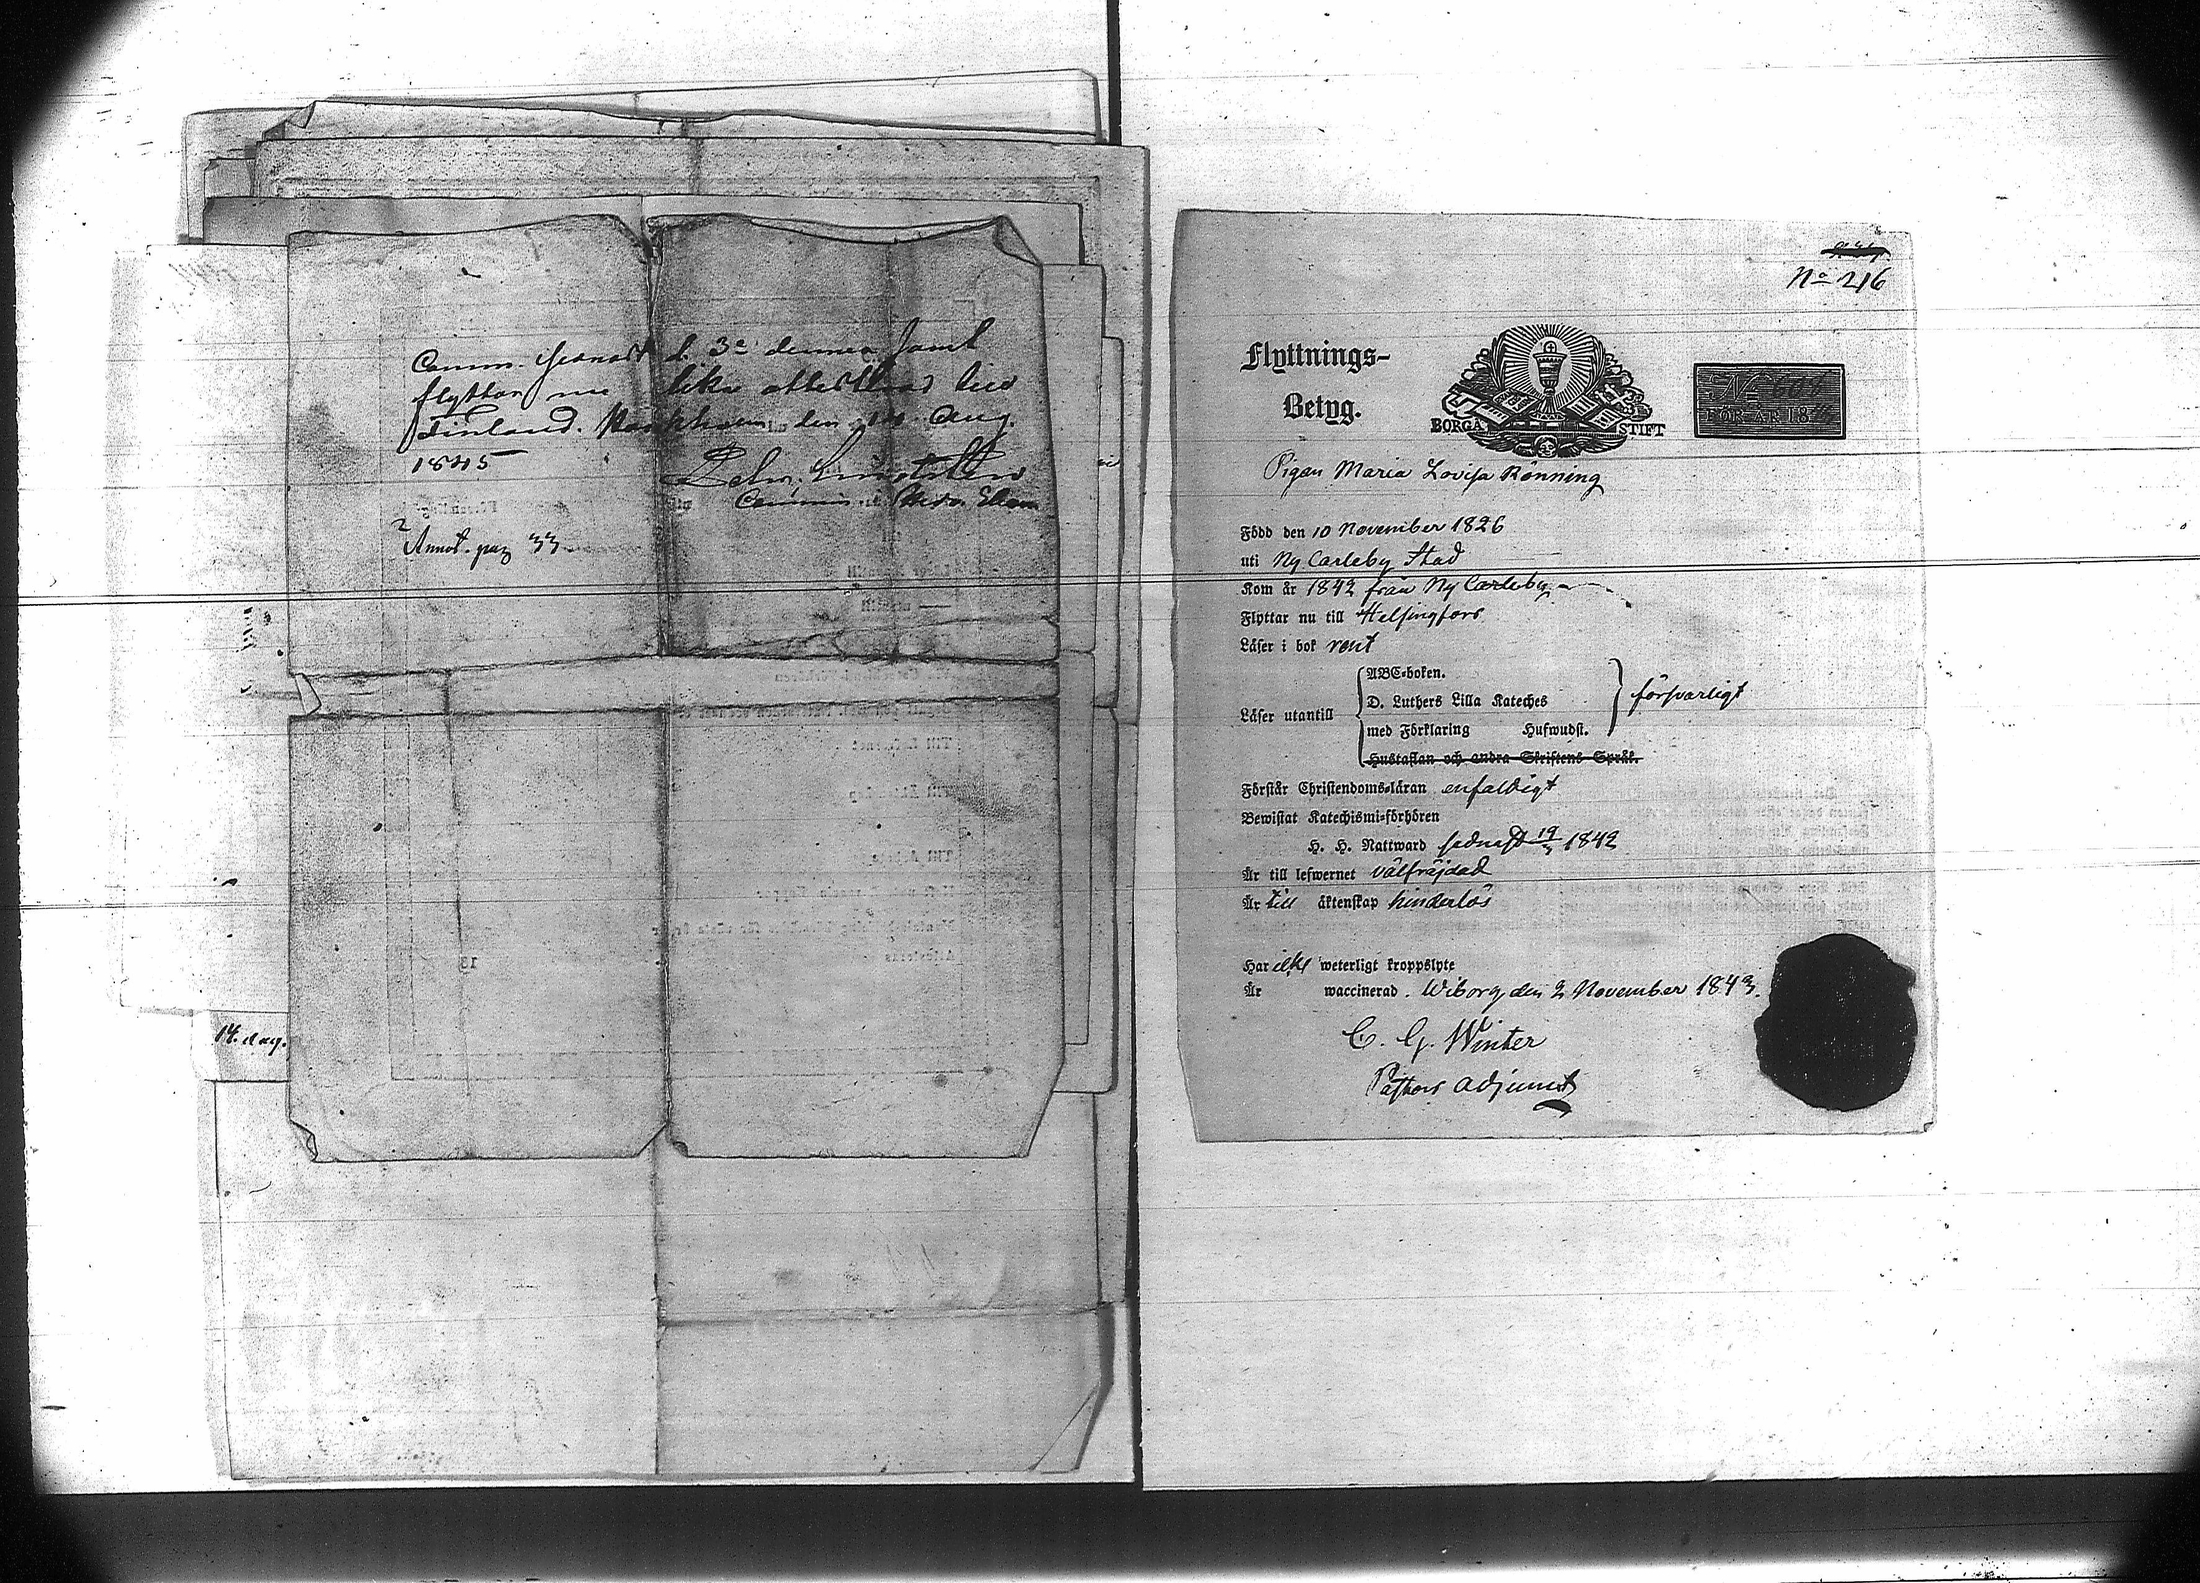 Comm. senast d. 3e dennes samt
flyttar nu lika attesterad till
Finland. Stockholm den 14 Aug.
1845
Annot. pag 33
14. dag.
No 216
Flyttnings-
Betyg.
BORGÅ STIFT
No
FÖR ÅR 18
Pigan Maria Lovisa Rönning
Född den 10 November 1826
uti Ny Carleby Stad
Kom år 1842 från Ny Carleby
Flyttar nu till Helsingfors
Läser i bok rent
Läser utantill
ABC-boken.
D. Luthers Lilla Kateches
med Förklaring Hufwudst.
Hustaflan och andra Skriftens Språk.
försvarligt
Förstår Christendoms-läran enfaldigt
Bewistat Katechismi-förhören
H. H. Nattward sednast 19/3 1842
Är till lefwernet välfräjdad
Är till äktenskap hinderlös
Har icke weterligt kroppslyte
Är waccinerad. Wiborg den 2 November 1843.
C. G. Winter
Pastors adjunct